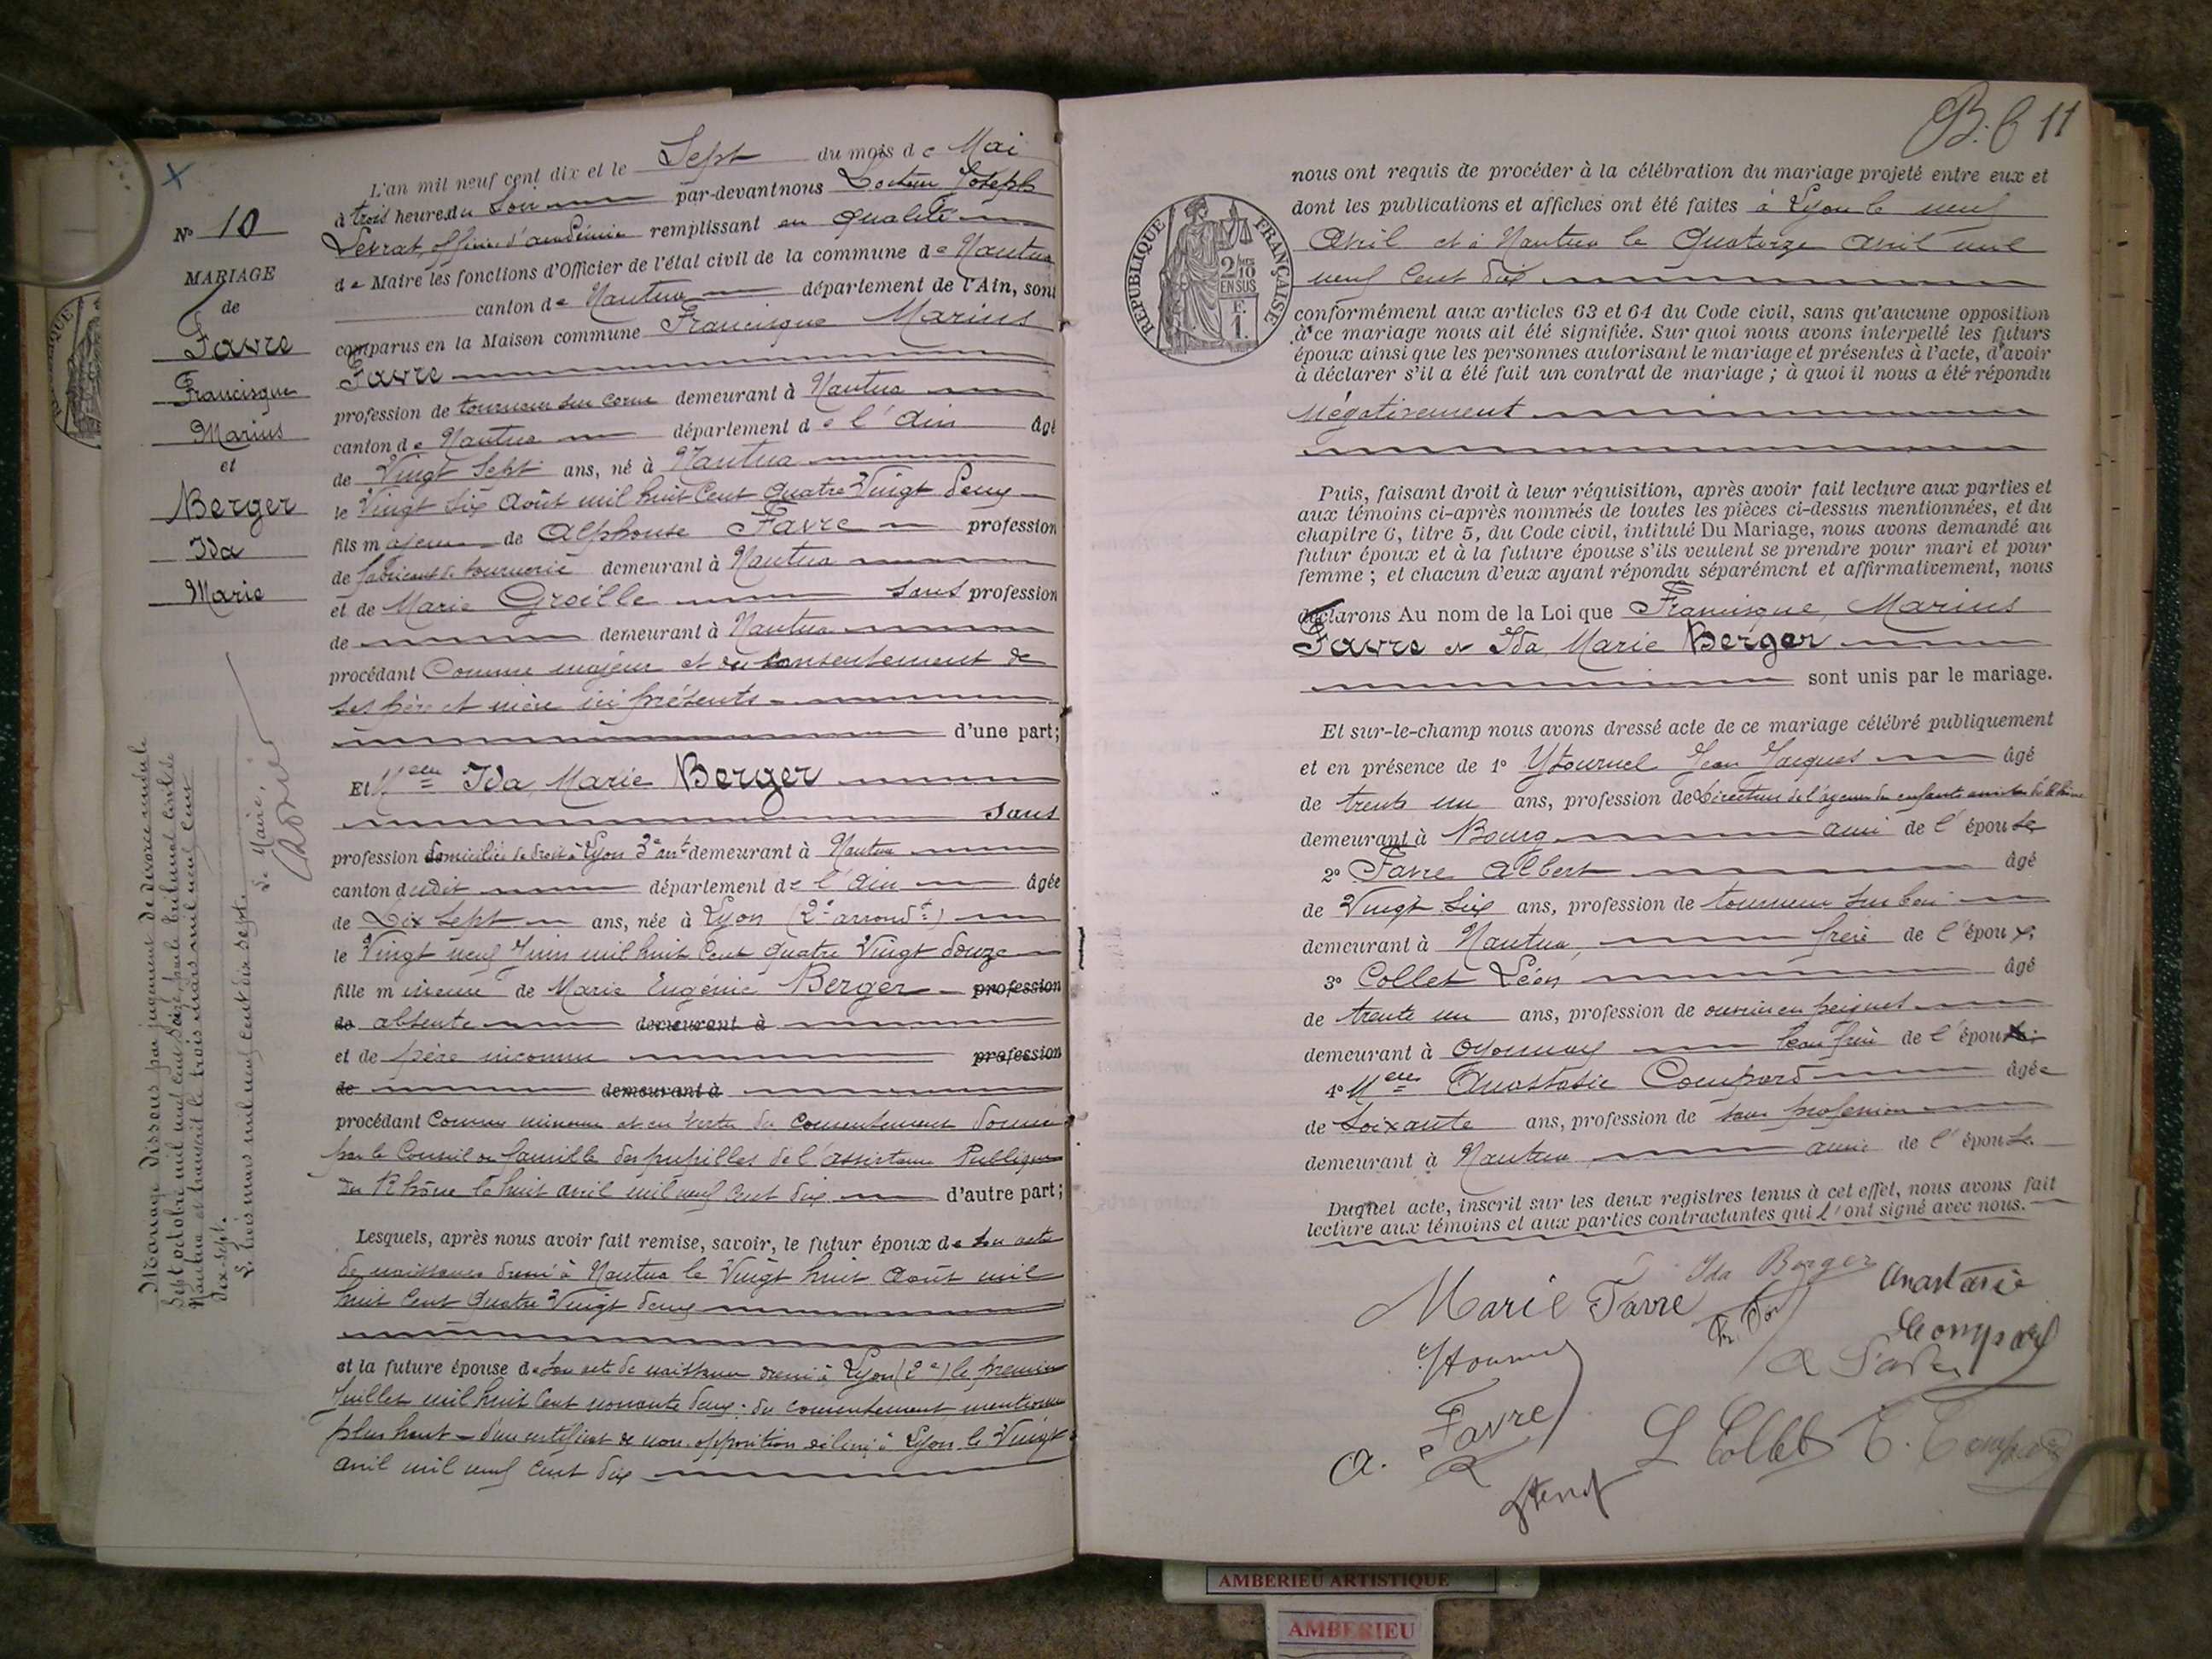 N° 10
MARIAGE
de
Favre
Francisque
Marius
et
Berger
Ida
Marie
Mariage dissous par jugement de divorce rendu le
sept octobre mil neuf cent seize par le tribunal civil de
Nantua et transcrit le trois mars mil neuf cent
dix-sept.
Le trois mars mil neuf cent dix sept.
Le Maire,
L'an mil neuf cent dix et le Sept du mois de Mai
à trois heures du Soir par-devant nous Docteur Joseph
Levrat, officier d'académie remplissant en qualité
de Maire les fonctions d'Officier de l'état civil de la commune de Nantua
canton de Nantua département de l'Ain, sont
comparus en la Maison commune Francisque Marius
Favre
profession de tourneur sur corne demeurant à Nantua
canton de Nantua département de l'Ain âgé
de Vingt Sept ans, né à Nantua
le Vingt Six Août mil huit Cent Quatre Vingt Deux
fils majeur de Alphonse Favre profession
de fabricant de tournerie demeurant à Nantua
et de Marie Groille sans profession
de demeurant à Nantua
procédant Comme majeur et du consentement de
ses père et mère ici présents
d'une part;
Et Melle Ida, Marie Berger
Sans
profession domiciliée de droit à Lyon 3e arrt demeurant à Nantua
canton dudit département de l'Ain âgée
de Dix Sept ans, née à Lyon (2e arrondt)
le Vingt neuf Juin mil huit Cent Quatre Vingt douze
fille mineure de Marie Eugénie Berger profession
de absente demeurant à
et de père inconnu profession
de demeurant à
procédant Comme mineure et en vertu du Consentement donné
par le Conseil de famille des pupilles de l'assistance Publique
du Rhône le huit avril mil neuf Cent dix d'autre part;
Lesquels, après nous avoir fait remise, savoir, le futur époux de son acte
de naissance dressé à Nantua le Vingt huit Août mil
huit Cent Quatre Vingt deux
et la future épouse de son acte de naissance dressé à Lyon (2e) le premier
Juillet mil huit Cent nonante deux; du consentement mentionné
plus haut – d'un certificat de non opposition délivré à Lyon le Vingt
avril mil neuf Cent dix
B. 6 11
RÉPUBLIQUE FRANÇAISE
2/10 EN SUS
F. 1.
nous ont requis de procéder à la célébration du mariage projeté entre eux et
dont les publications et affiches ont été faites à Lyon le neuf
Avril et à Nantua le Quatorze avril mil
neuf Cent dix
conformément aux articles 63 et 64 du Code civil, sans qu'aucune opposition
à ce mariage nous ait été signifiée. Sur quoi nous avons interpellé les futurs
époux ainsi que les personnes autorisant le mariage et présentes à l'acte, d'avoir
à déclarer s'il a été fait un contrat de mariage ; à quoi il nous a été répondu
négativement
Puis, faisant droit à leur réquisition, après avoir fait lecture aux parties et
aux témoins ci-après nommés de toutes les pièces ci-dessus mentionnées, et du
chapitre 6, titre 5, du Code civil, intitulé Du Mariage, nous avons demandé au
futur époux et à la future épouse s'ils veulent se prendre pour mari et pour
femme ; et chacun d'eux ayant répondu séparément et affirmativement, nous
déclarons Au nom de la Loi que Francisque, Marius
Favre et Ida, Marie Berger
sont unis par le mariage.
Et sur-le-champ nous avons dressé acte de ce mariage célébré publiquement
et en présence de 1° Ytournel Jean Jacques âgé
de trente un ans, profession de Directeur de l'agence des enfants assistés de
demeurant à Bourg ami de l'épouse
2° Favre Albert âgé
de Vingt Six ans, profession de tourneur sur bois
demeurant à Nantua, frère de l'époux
3° Collet Léon âgé
de trente un ans, profession de ouvrier en peignes
demeurant à Oyonnax beau frère de l'époux
4° Melle Anastasie Compard âgée
de Soixante ans, profession de sans profession
demeurant à Nantua amie de l'épouse
Duquel acte, inscrit sur les deux registres tenus à cet effet, nous avons fait
lecture aux témoins et aux parties contractantes qui l'ont signé avec nous.
Ida Berger
Marie Favre
Anastasie
Compard
A. Favre
L Collet
AMBERIEU ARTISTIQUE
AMBERIEU